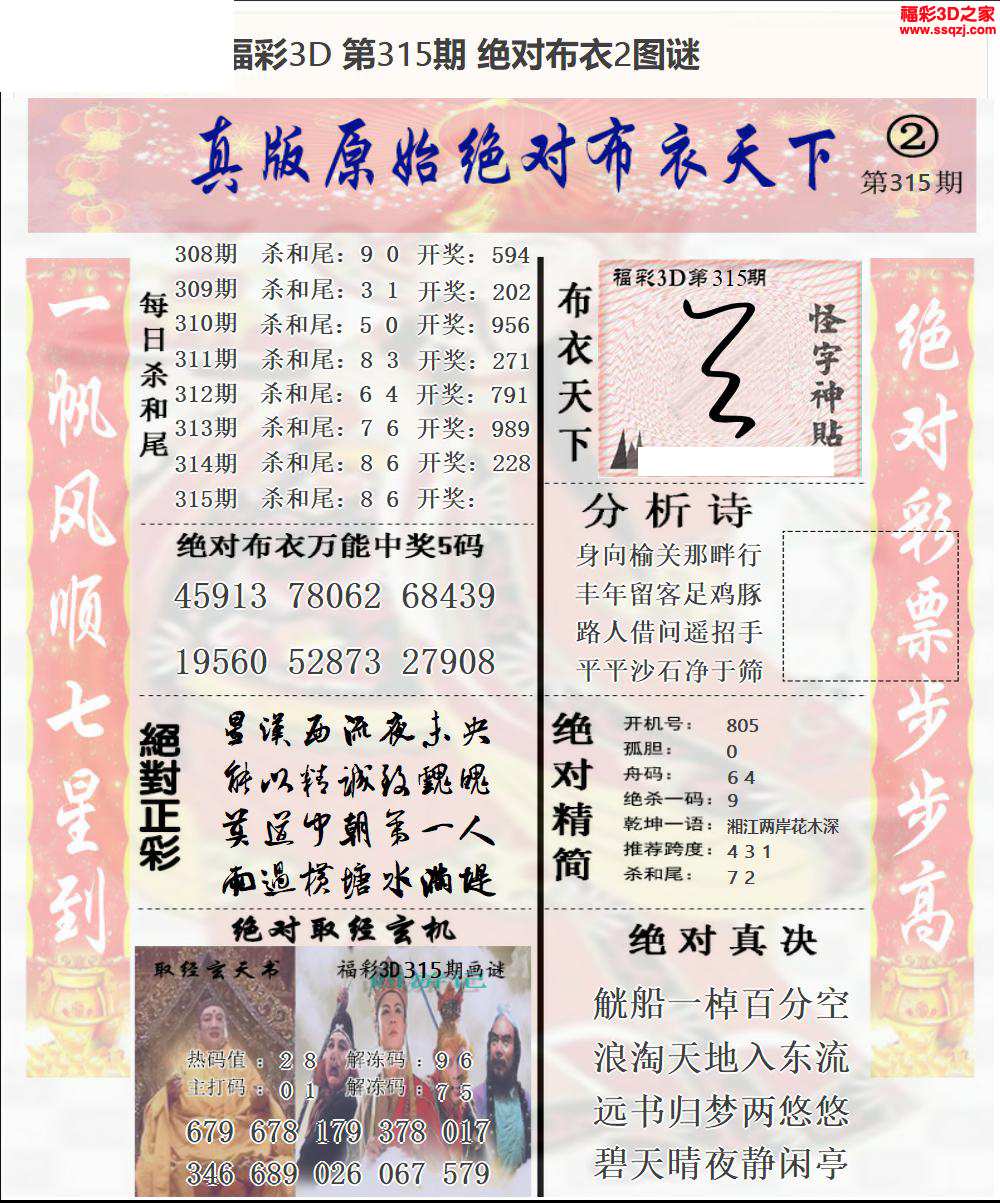 福彩3D之家
www.ssqzj.com
福彩3D 第315期 绝对布衣2图谜
真版原始绝对布衣天下
②
第315期
一帆风顺七星到
每日杀和尾
308期 杀和尾: 9 0 开奖: 594
309期 杀和尾: 3 1 开奖: 202
310期 杀和尾: 5 0 开奖: 956
311期 杀和尾: 8 3 开奖: 271
312期 杀和尾: 6 4 开奖: 791
313期 杀和尾: 7 6 开奖: 989
314期 杀和尾: 8 6 开奖: 228
315期 杀和尾: 8 6 开奖:
绝对布衣万能中奖5码
45913 78062 68439
19560 52873 27908
絕對正彩
星漢西流夜未央
能以精诚致魂魄
莫道中朝第一人
雨過横塘水满堤
绝对取经玄机
取经玄天书
福彩3D315期画谜
热码值 : 2 8 解冻码 : 9 6
主打码 : 0 1 解冻码 : 7 5
679 678 179 378 017
346 689 026 067 579
布衣天下
福彩3D第315期
怪字神貼
分析诗
身向榆关那畔行
丰年留客足鸡豚
路人借问遥招手
平平沙石净于筛
绝对精简
开机号: 805
孤胆: 0
舟码: 6 4
绝杀一码: 9
乾坤一语: 湘江两岸花木深
推荐跨度: 4 3 1
杀和尾: 7 2
绝对真决
觥船一棹百分空
浪淘天地入东流
远书归梦两悠悠
碧天晴夜静闲亭
绝对彩票步步高